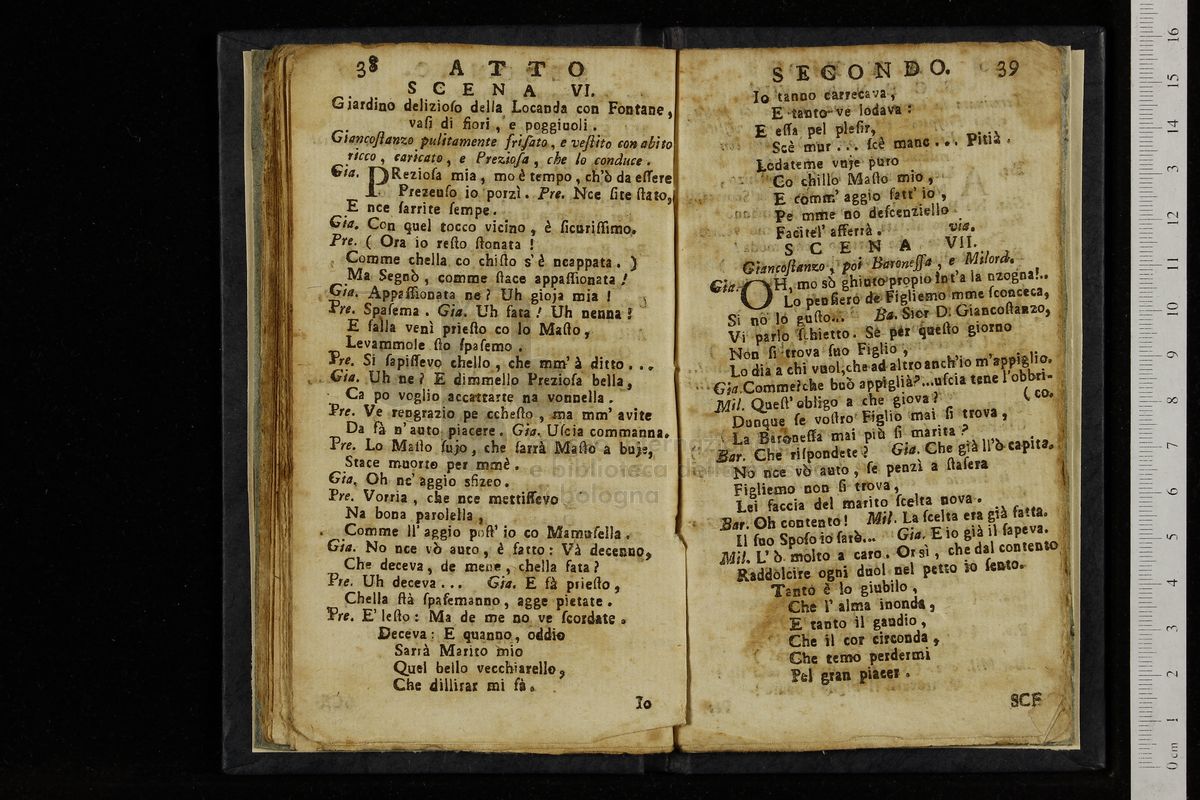 38 ATTO
SCENA VI.
Giardino delizioſo della Locanda con Fontane,
vaſi di fiori, e poggiuoli.
Giancoſtanzo pulitamente friſato, e veſtito con abito
ricco, caricato, e Prezioſa, che lo conduce.
Gia. PRezioſa mia, mo è tempo, ch'ò da eſſere
Prezenſo io porzì. Pre. Nce ſite ſtato,
E nce ſarrite ſempe.
Gia. Con quel tocco vicino, è ſicuriſſimo.
Pre. ( Ora io reſto ſtonata !
Comme chella co chiſto s'è ncappata. )
Ma Segnò, comme ſtace appaſſionata !
Gia. Appaſſionata ne? Uh gioja mia !
Pre. Spaſema. Gia. Uh fata! Uh nenna!
E falla venì prieſto co lo Maſto,
Levammole ſto ſpaſemo.
Pre. Si ſapiſſevo chello, che mm'à ditto...
Gia. Uh ne? E dimmello Prezioſa bella,
Ca po voglio accattarte na vonnella.
Pre. Ve rengrazio pe ccheſto, ma mm' avite
Da fà n'auto piacere. Gia. Uſcia commanna.
Pre. Lo Maſto ſujo, che ſarrà Maſto a buje,
Stace muorto per mmè.
Gia. Oh ne' aggio sfizeo.
Pre. Vorria, che nce mettiſſevo
Na bona parolella,
Comme ll' aggio poſt' io co Mamuſella.
Gia. No nce vò auto, è fatto: Và decenno,
Che deceva, de mene, chella fata?
Pre. Uh deceva... Gia. E fà prieſto,
Chella ſtà ſpaſemanno, agge pietate.
Pre. E' leſto: Ma de me no ve ſcordate.
Deceva: E quanno, oddio
Sarrà Marito mio
Quel bello vecchiarello,
Che dillirar mi fà.
Io
SECONDO. 39
Io tanno carrecava,
E tanto ve lodava:
E eſſa pel pleſir,
Scè mur... ſcè manc... Pitià.
Lodateme vuje puro
Co chillo Maſto mio,
E comm' aggio fatt' io,
Pe mme no deſcenziello
Facitel' afferrà. via.
SCENA VII.
Giancoſtanzo, poi Baroneſſa, e Milord.
Gia. OH, mo sò ghiuto propio int'a la nzogna!..
Lo penſiero de Figliemo mme ſconceca,
Si nò lo guſto... Ba. Sior D. Giancoſtanzo,
Vi parlo ſchietto. Se per queſto giorno
Non ſi trova ſuo Figlio,
Lo dia a chi vuol, che ad altro anch'io m'appiglio.
Gia. Comme? che buò appiglià?...uſcia tene l'obbri-
Mil. Queſt' obligo a che giova? ( co.
Dunque ſe voſtro Figlio mai ſi trova,
La Baroneſſa mai più ſi marita?
Bar. Che riſpondete? Gia. Che già ll'ò capita.
No nce vò auto, ſe penzì a ſtaſera
Figliemo non ſi trova,
Lei faccia del marito ſcelta nova.
Bar. Oh contento! Mil. La ſcelta era già fatta.
Il ſuo Spoſo io ſarò... Gia. E io già il ſapeva.
Mil. L'ò molto a caro. Orsì, che dal contento
Raddolcire ogni duol nel petto io ſento.
Tanto è lo giubilo,
Che l' alma inonda,
E tanto il gaudio,
Che il cor circonda,
Che temo perdermi
Pel gran piacer.
SCE